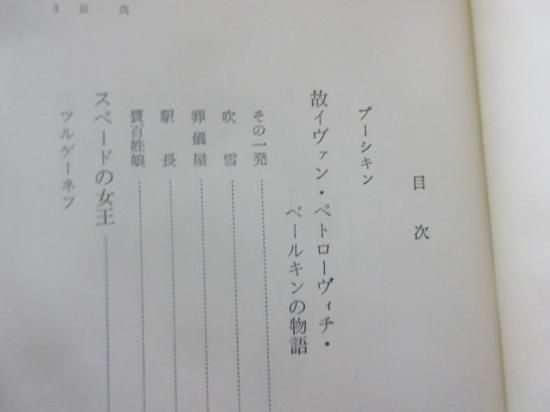 目次
プーシキン
故イヴァン・ペトローヴィチ・
ベールキンの物語
その一発
吹雪
葬儀屋
駅長
贋百姓娘
スペードの女王
ツルゲーネフ
目次